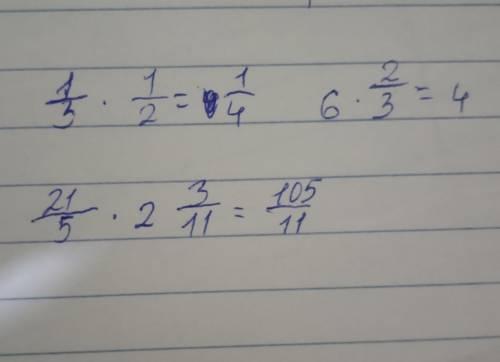 1/3 · 1/2 = 1/4 6 · 2/3 = 4
21/5 · 2 3/11 = 105/11